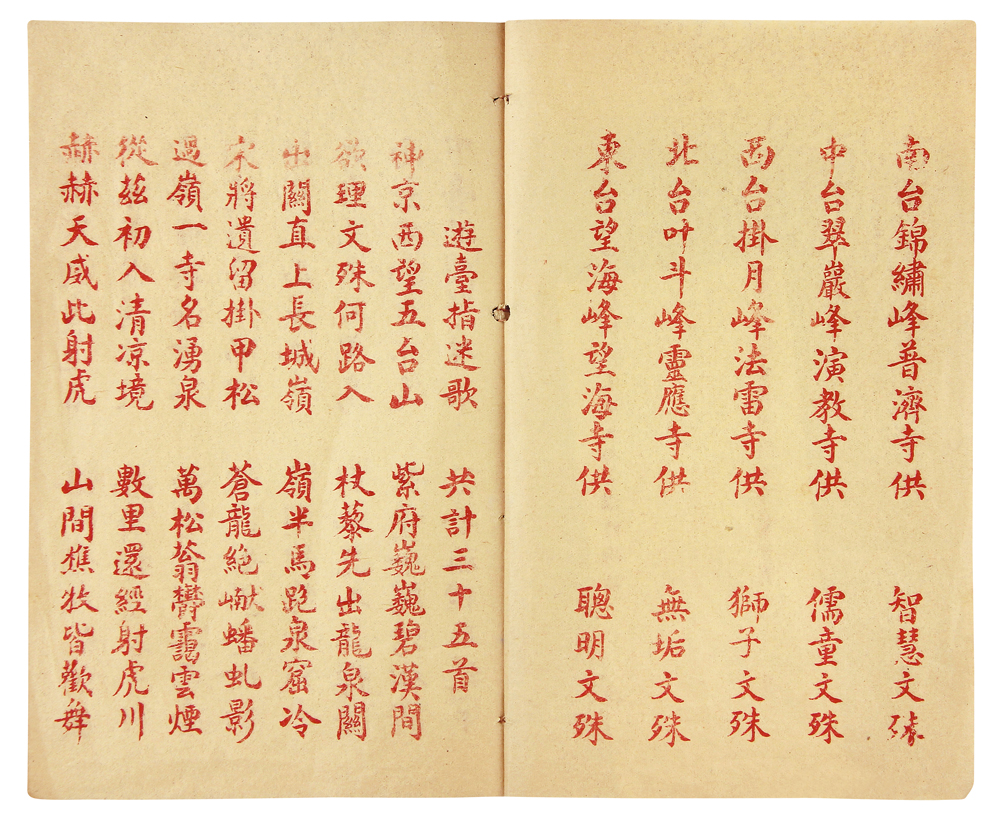 南台錦繡峰普濟寺供 智慧文殊
中台翠巖峰演教寺供 儒童文殊
西台掛月峰法雷寺供 獅子文殊
北台叶斗峰靈應寺供 無垢文殊
東台望海峰望海寺供 聰明文殊
遊臺指迷歌 共計三十五首
神京西望五台山 紫府巍巍碧漢間
欲理文殊何路入 杖藜先出龍泉關
出關直上長城嶺 嶺半馬跑泉窟冷
宋將遺留掛甲松 蒼龍絕巘蟠虬影
過嶺一寺名湧泉 萬松蓊欝靄雲煙
從茲初入清凉境 數里還經射虎川
赫赫天威此射虎 山間樵牧皆歡舞